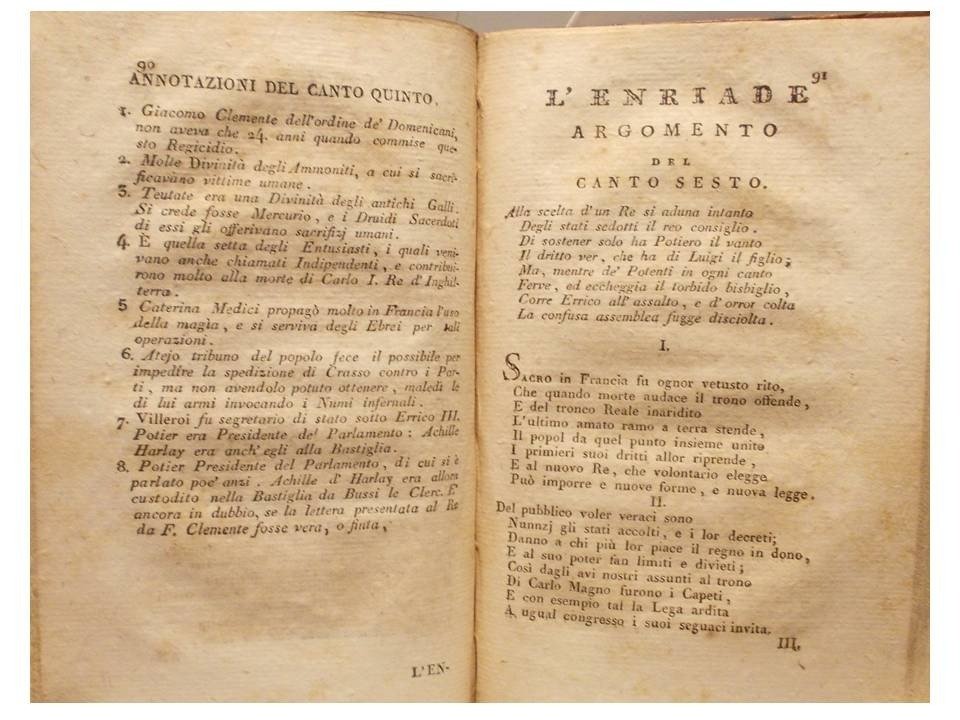 90
ANNOTAZIONI DEL CANTO QUINTO.
1. Giacomo Clemente dell'ordine de' Domenicani,
non aveva che 24. anni quando commise que-
sto Regicidio.
2. Molte Divinità degli Ammoniti, a cui si sacri-
ficavano vittime umane.
3. Teutate era una Divinità degli antichi Galli.
Si crede fosse Mercurio, e i Druidi Sacerdoti
di essi gli offerivano sacrifizj umani.
4. È quella setta degli Entusiasti, i quali veni-
vano anche chiamati Indipendenti, e contribui-
rono molto alla morte di Carlo I. Re d'Inghil-
terra.
5 Caterina Medici propagò molto in Francia l'uso
della magìa, e si serviva degli Ebrei per tali
operazioni.
6. Atejo tribuno del popolo fece il possibile per
impedire la spedizione di Crasso contro i Par-
ti, ma non avendolo potuto ottenere, maledì le
di lui armi invocando i Numi infernali.
7. Villeroi fu segretario di stato sotto Errico III.
Potier era Presidente de' Parlamento: Achille
Harlay era anch' egli alla Bastiglia.
8. Potier Presidente del Parlamento, di cui si è
parlato poc' anzi. Achille d' Harlay era allora
custodito nella Bastiglia da Bussi le Clerc. E'
ancora in dubbio, se la lettera presentata al Re
da F. Clemente fosse vera, o finta,
L'EN-
91
L'ENRIADE
ARGOMENTO
DEL
CANTO SESTO.
Alla scelta d'un Re si aduna intanto
Degli stati sedotti il reo consiglio.
Di sostener solo ha Potiero il vanto
Il dritto ver, che ha di Luigi il figlio;
Ma, mentre de' Potenti in ogni canto
Ferve, ed eccheggia il torbido bisbiglio,
Corre Errico all' assalto, e d'orror colta
La confusa assemblea fugge disciolta.
I.
SACRO in Francia fu ognor vetusto rito,
Che quando morte audace il trono offende,
E del tronco Reale inaridito
L'ultimo amato ramo a terra stende,
Il popol da quel punto insieme unito
I primieri suoi dritti allor riprende,
E al nuovo Re, che volontario elegge
Può imporre e nuove forme, e nuova legge.
II.
Del pubblico voler veraci sono
Nunnzj gli stati accolti, e i lor decreti;
Danno a chi più lor piace il regno in dono,
E al suo poter fan limiti e divieti;
Così dagli avi nostri assunti al trono
Di Carlo Magno furono i Capeti,
E con esempio tal la Lega ardita
A ugual congresso i suoi seguaci invita.
III.